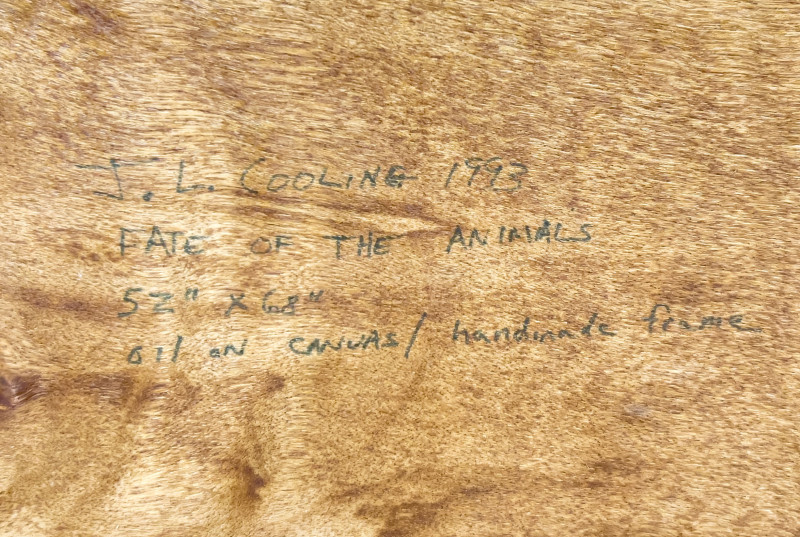 J. L. COOLING 1993
FATE OF THE ANIMALS
52" x 68"
oil on CANVAS/ handmade frame